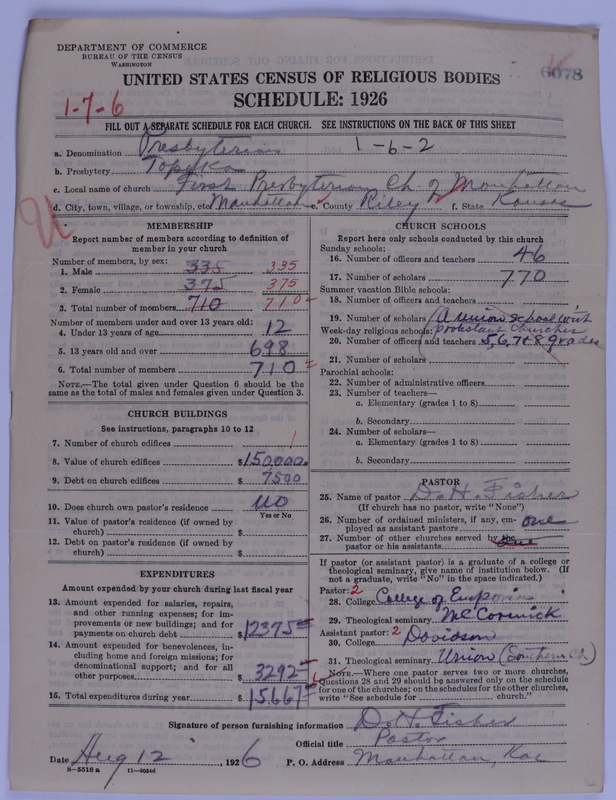 DEPARTMENT OF COMMERCE
BUREAU OF THE CENSUS
WASHINGTON
6078
UNITED STATES CENSUS OF RELIGIOUS BODIES
SCHEDULE: 1926
1-7-6
FILL OUT A SEPARATE SCHEDULE FOR EACH CHURCH. SEE INSTRUCTIONS ON THE BACK OF THIS SHEET
a. Denomination Presbyterian 1-6-2
b. Presbytery Topeka
c. Local name of church First Presbyterian Ch. of Manhattan
d. City, town, village, or township, etc Manhattan e. County Riley f. State Kansas
MEMBERSHIP
Report number of members according to definition of
member in your church
Number of members, by sex:
1. Male 335 335
2. Female 375 375
3. Total number of members 710 710
Number of members under and over 13 years old:
4. Under 13 years of age 12
5. 13 years old and over 698
6. Total number of members 710
NOTE.—The total given under Question 6 should be the
same as the total of males and females given under Question 3.
CHURCH BUILDINGS
See instructions, paragraphs 10 to 12
7. Number of church edifices 1
8. Value of church edifices $150,000.
9. Debt on church edifices $7500
10. Does church own pastor's residence? no
Yes or No
11. Value of pastor's residence (if owned by
church) $
12. Debt on pastor's residence (if owned by
church) $
EXPENDITURES
Amount expended by your church during last fiscal year
13. Amount expended for salaries, repairs,
and other running expenses; for im-
provements or new buildings; and for
payments on church debt $12375
14. Amount expended for benevolences, in-
cluding home and foreign missions; for
denominational support; and for all
other purposes $3292
15. Total expenditures during year $15667
CHURCH SCHOOLS
Report here only schools conducted by this church
Sunday schools:
16. Number of officers and teachers 46
17. Number of scholars 770
Summer vacation Bible schools:
18. Number of officers and teachers
19. Number of scholars (A union school with
Week-day religious schools: protestant churches
20. Number of officers and teachers 5,6,7+8 grades
21. Number of scholars
Parochial schools:
22. Number of administrative officers
23. Number of teachers—
a. Elementary (grades 1 to 8)
b. Secondary
24. Number of scholars—
a. Elementary (grades 1 to 8)
b. Secondary
PASTOR
25. Name of pastor D. H. Fisher
(If church has no pastor, write "None")
26. Number of ordained ministers, if any, em-
ployed as assistant pastors one
27. Number of other churches served by the
pastor or his assistants one
If pastor (or assistant pastor) is a graduate of a college or
theological seminary, give name of institution below. (If
not a graduate, write "No" in the space indicated.)
Pastor: 2
28. College College of Emporia
29. Theological seminary McCormick
Assistant pastor: 2
30. College Davidson
31. Theological seminary Union (Southern Ch)
NOTE.—Where one pastor serves two or more churches,
Questions 28 and 29 should be answered only on the schedule
for one of the churches; on the schedules for the other churches,
write "See schedule for church."
Signature of person furnishing information D. H. Fisher
Official title Pastor
Date Aug 12, 1926 P. O. Address Manhattan, Kas
8—5518 a 11—9054d